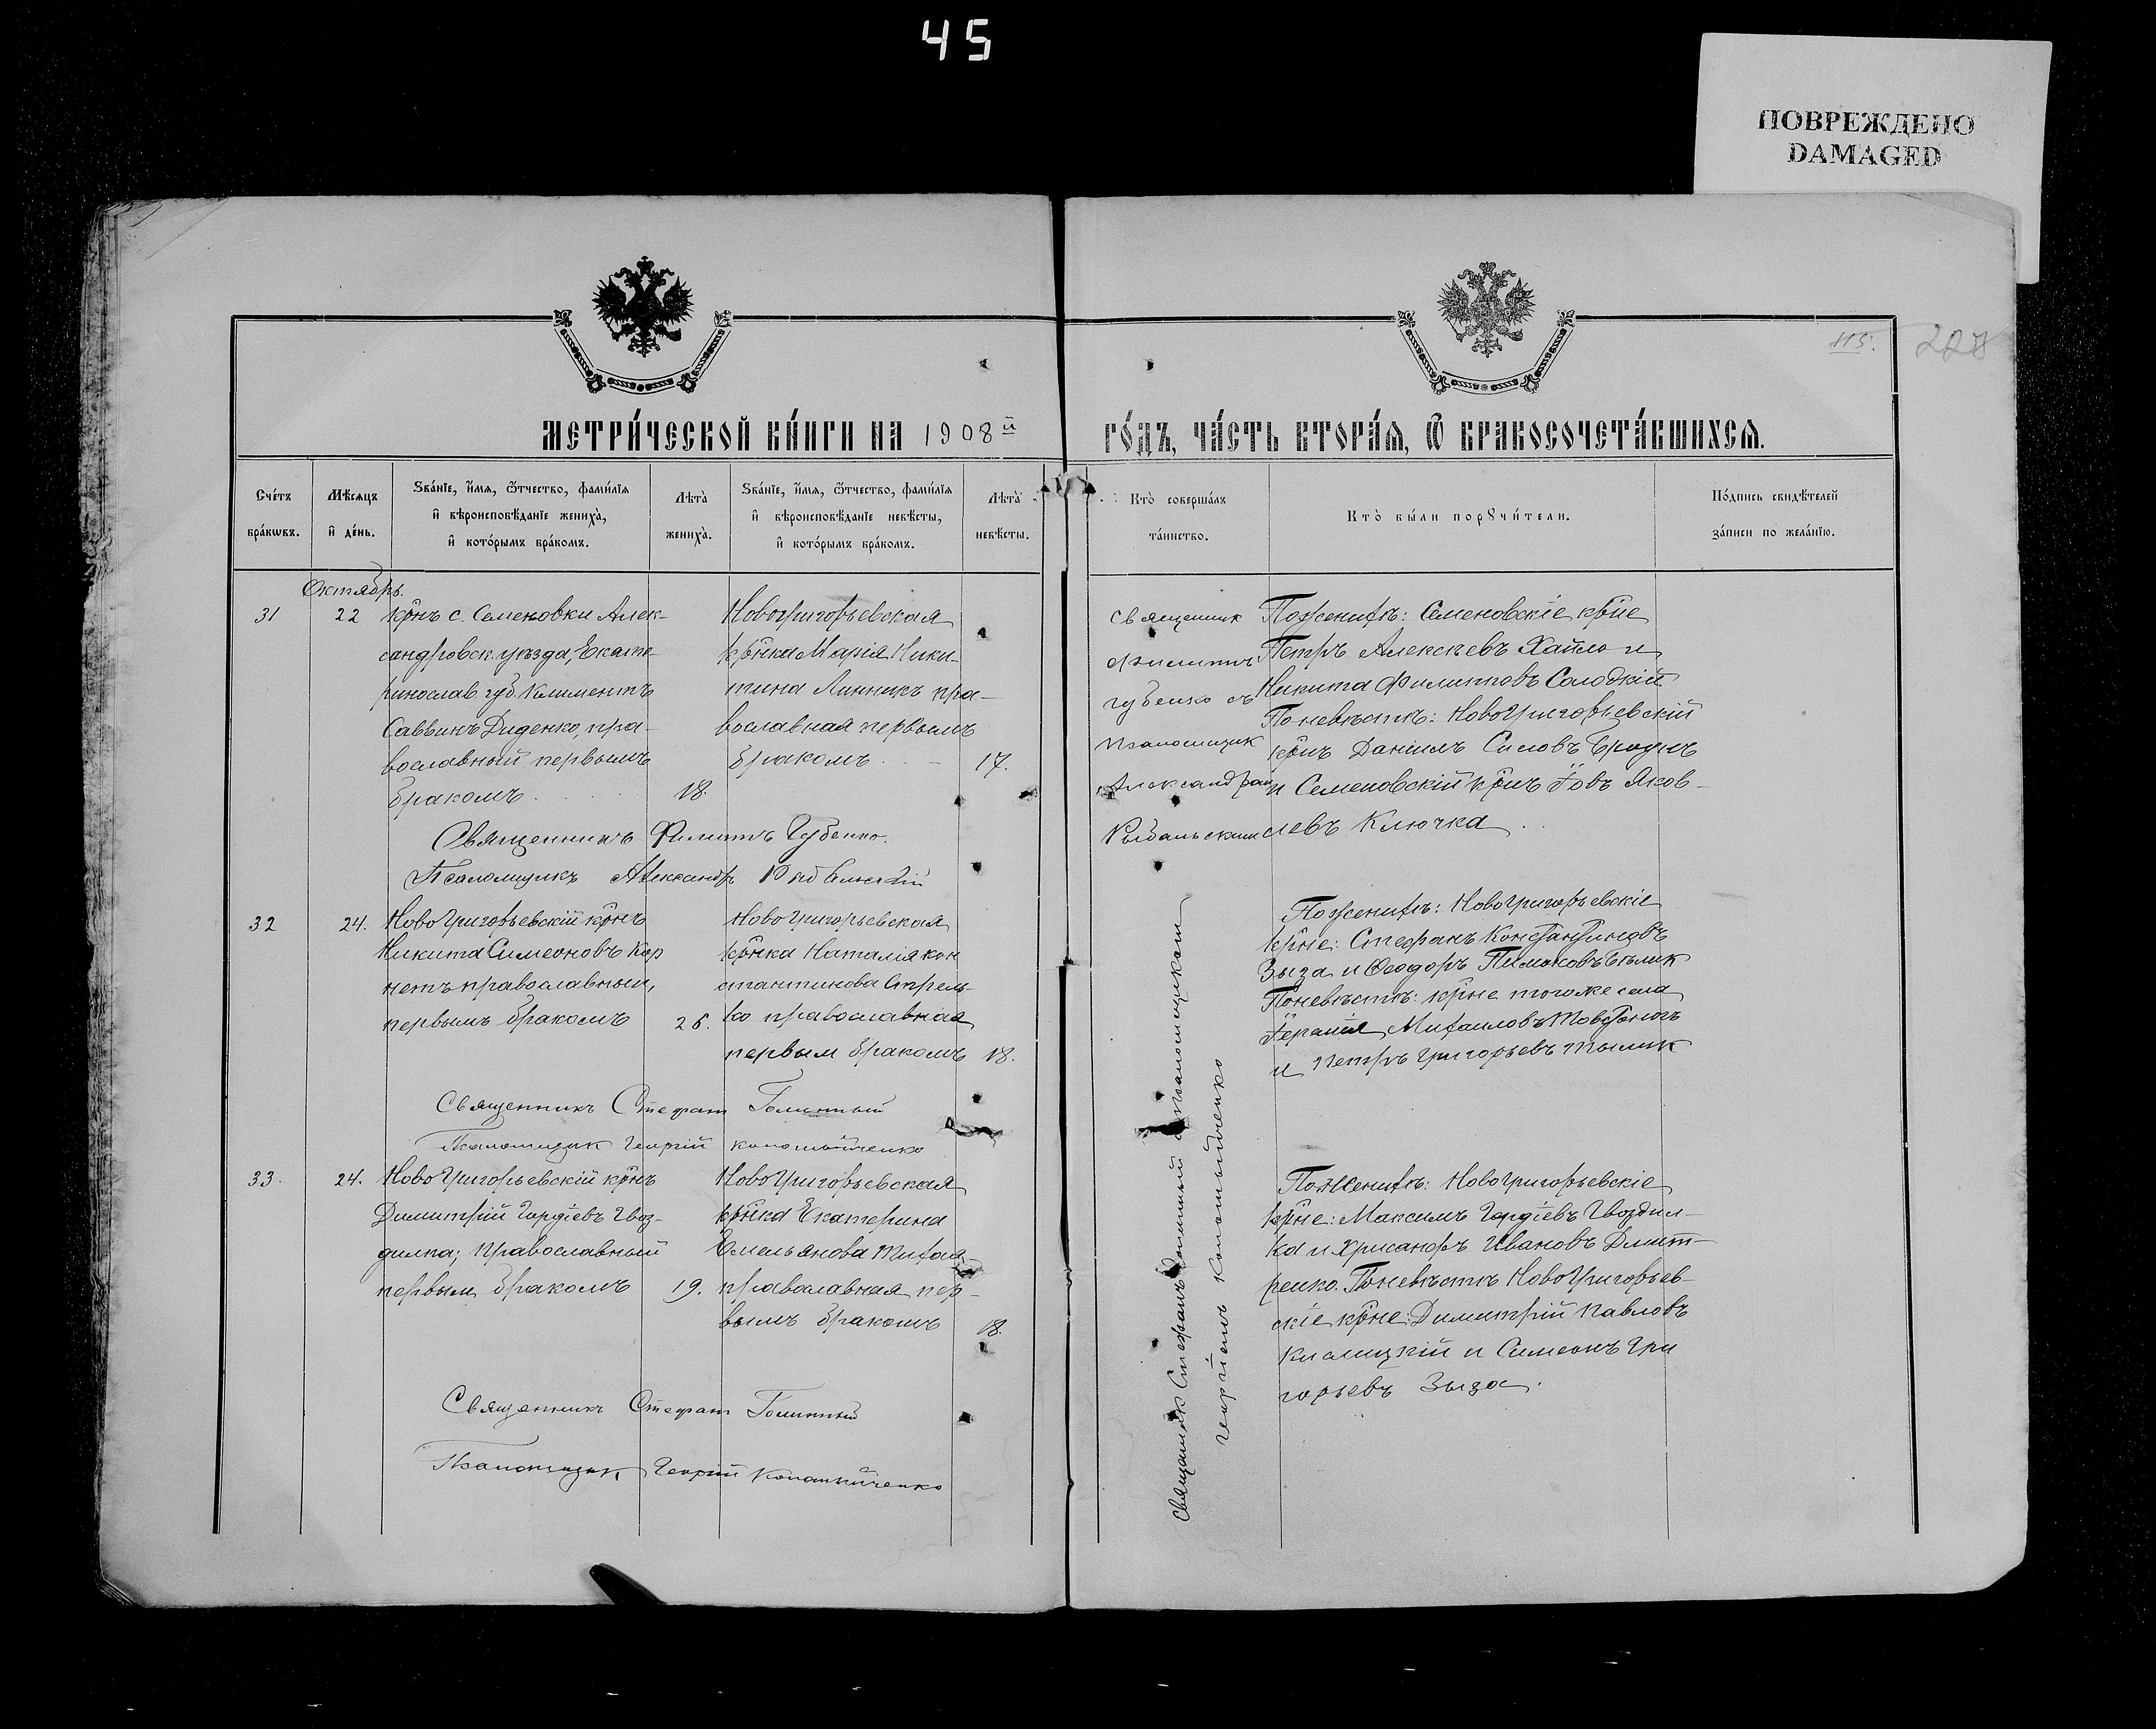 45
ПОВРЕЖДЕНО
DAMAGED
115.
228
МЕТРИ́ЧЕСКОЙ КНИ́ГИ НА 1908й
ГО́ДЪ, ЧА́СТЬ ВТОРА́Я, Ѿ БРАКОСОЧЕТА́ВШИХСЯ.
Сче́тъ бра́кѡвъ.
Мѣ́сяцъ и҆ де́нь.
Зва́нїе, и҆́мя, ѻ҆́тчество, фами́лїя
и҆ вѣроисповѣ́данїе жениха̀,
и҆ кото́рымъ бра́комъ.
Лѣта̀ жениха̀.
Зва́нїе, и҆́мя, ѻ҆́тчество, фами́лїя
и҆ вѣроисповѣ́данїе невѣ́сты,
и҆ кото́рымъ бра́комъ.
Лѣта̀ невѣ́сты.
Кто̀ соверша́лъ
та́инство.
Кто̀ бы́ли порꙋчи́тели.
По́дпись свидѣ́телей
за́писи по жела́нїю.
Октябрь.
31
22
крнъ с. Семеновки Алек-
сандровск. уѣзда, Екате-
ринослав губ. Климентъ
Саввинъ Диденко, пра-
вославный первымъ
бракомъ.
18.
Новогригорьевская
крнка Марія Ники-
тина Линникъ пра-
вославная первымъ
бракомъ
17.
Священникъ
Филиппъ
Губенко съ
Псаломщик
Александром
Рыбальским
По женихѣ: Семеновскіе крне
Петръ Алексѣевъ Хайло и
Никита Филипповъ Солодкій.
По невѣстѣ: Новогригорьевскій
крнъ Даніилъ Силовъ
и Семеновскій крнъ Іовъ Яков-
левъ Ключка.
Священникъ Филиппъ Губенко.
Псаломщикъ Александръ Рыбальскій
32
24.
Новогригорьевскій крнъ
Никита Симеоновъ Кор
нетъ православный,
первымъ бракомъ
25.
Новогригорьевская
крнка Наталія Кон
стантинова Стрель-
ко православная
первым бракомъ
18.
По женихѣ: Новогригорьевскіе
крне: Стефанъ Константиновъ
Зыза и Ѳеодоръ
По невѣстѣ: крне того же села
Михаиловъ
и Петръ Григорьевъ
Священникъ Стефан Голинный
Псаломщик Георгій Коломыйченко
33.
24.
Новогригорьевскій крнъ
Димитрій Гордіевъ Гвоз-
дилка; православный
первым бракомъ
19.
Новогригорьевская
крнка Екатерина
Емельянова
православная пер-
вымъ бракомъ
18.
По женихѣ: Новогригорьевскіе
крне: Максимъ Гордіевъ Гвоздил-
ка и Хрисанфъ Ивановъ Дмит-
ренко. По невѣстѣ Новогригорьев-
скіе крне: Димитрій Павловъ
Кислицкій и Симеонъ Гри
горьевъ Зыза.
Священникъ Стефан Голинный
Псаломщик Георгій Коломыйченко
Священникъ Стефанъ Голинный съ псаломщиком
Георгіемъ Коломыйченко